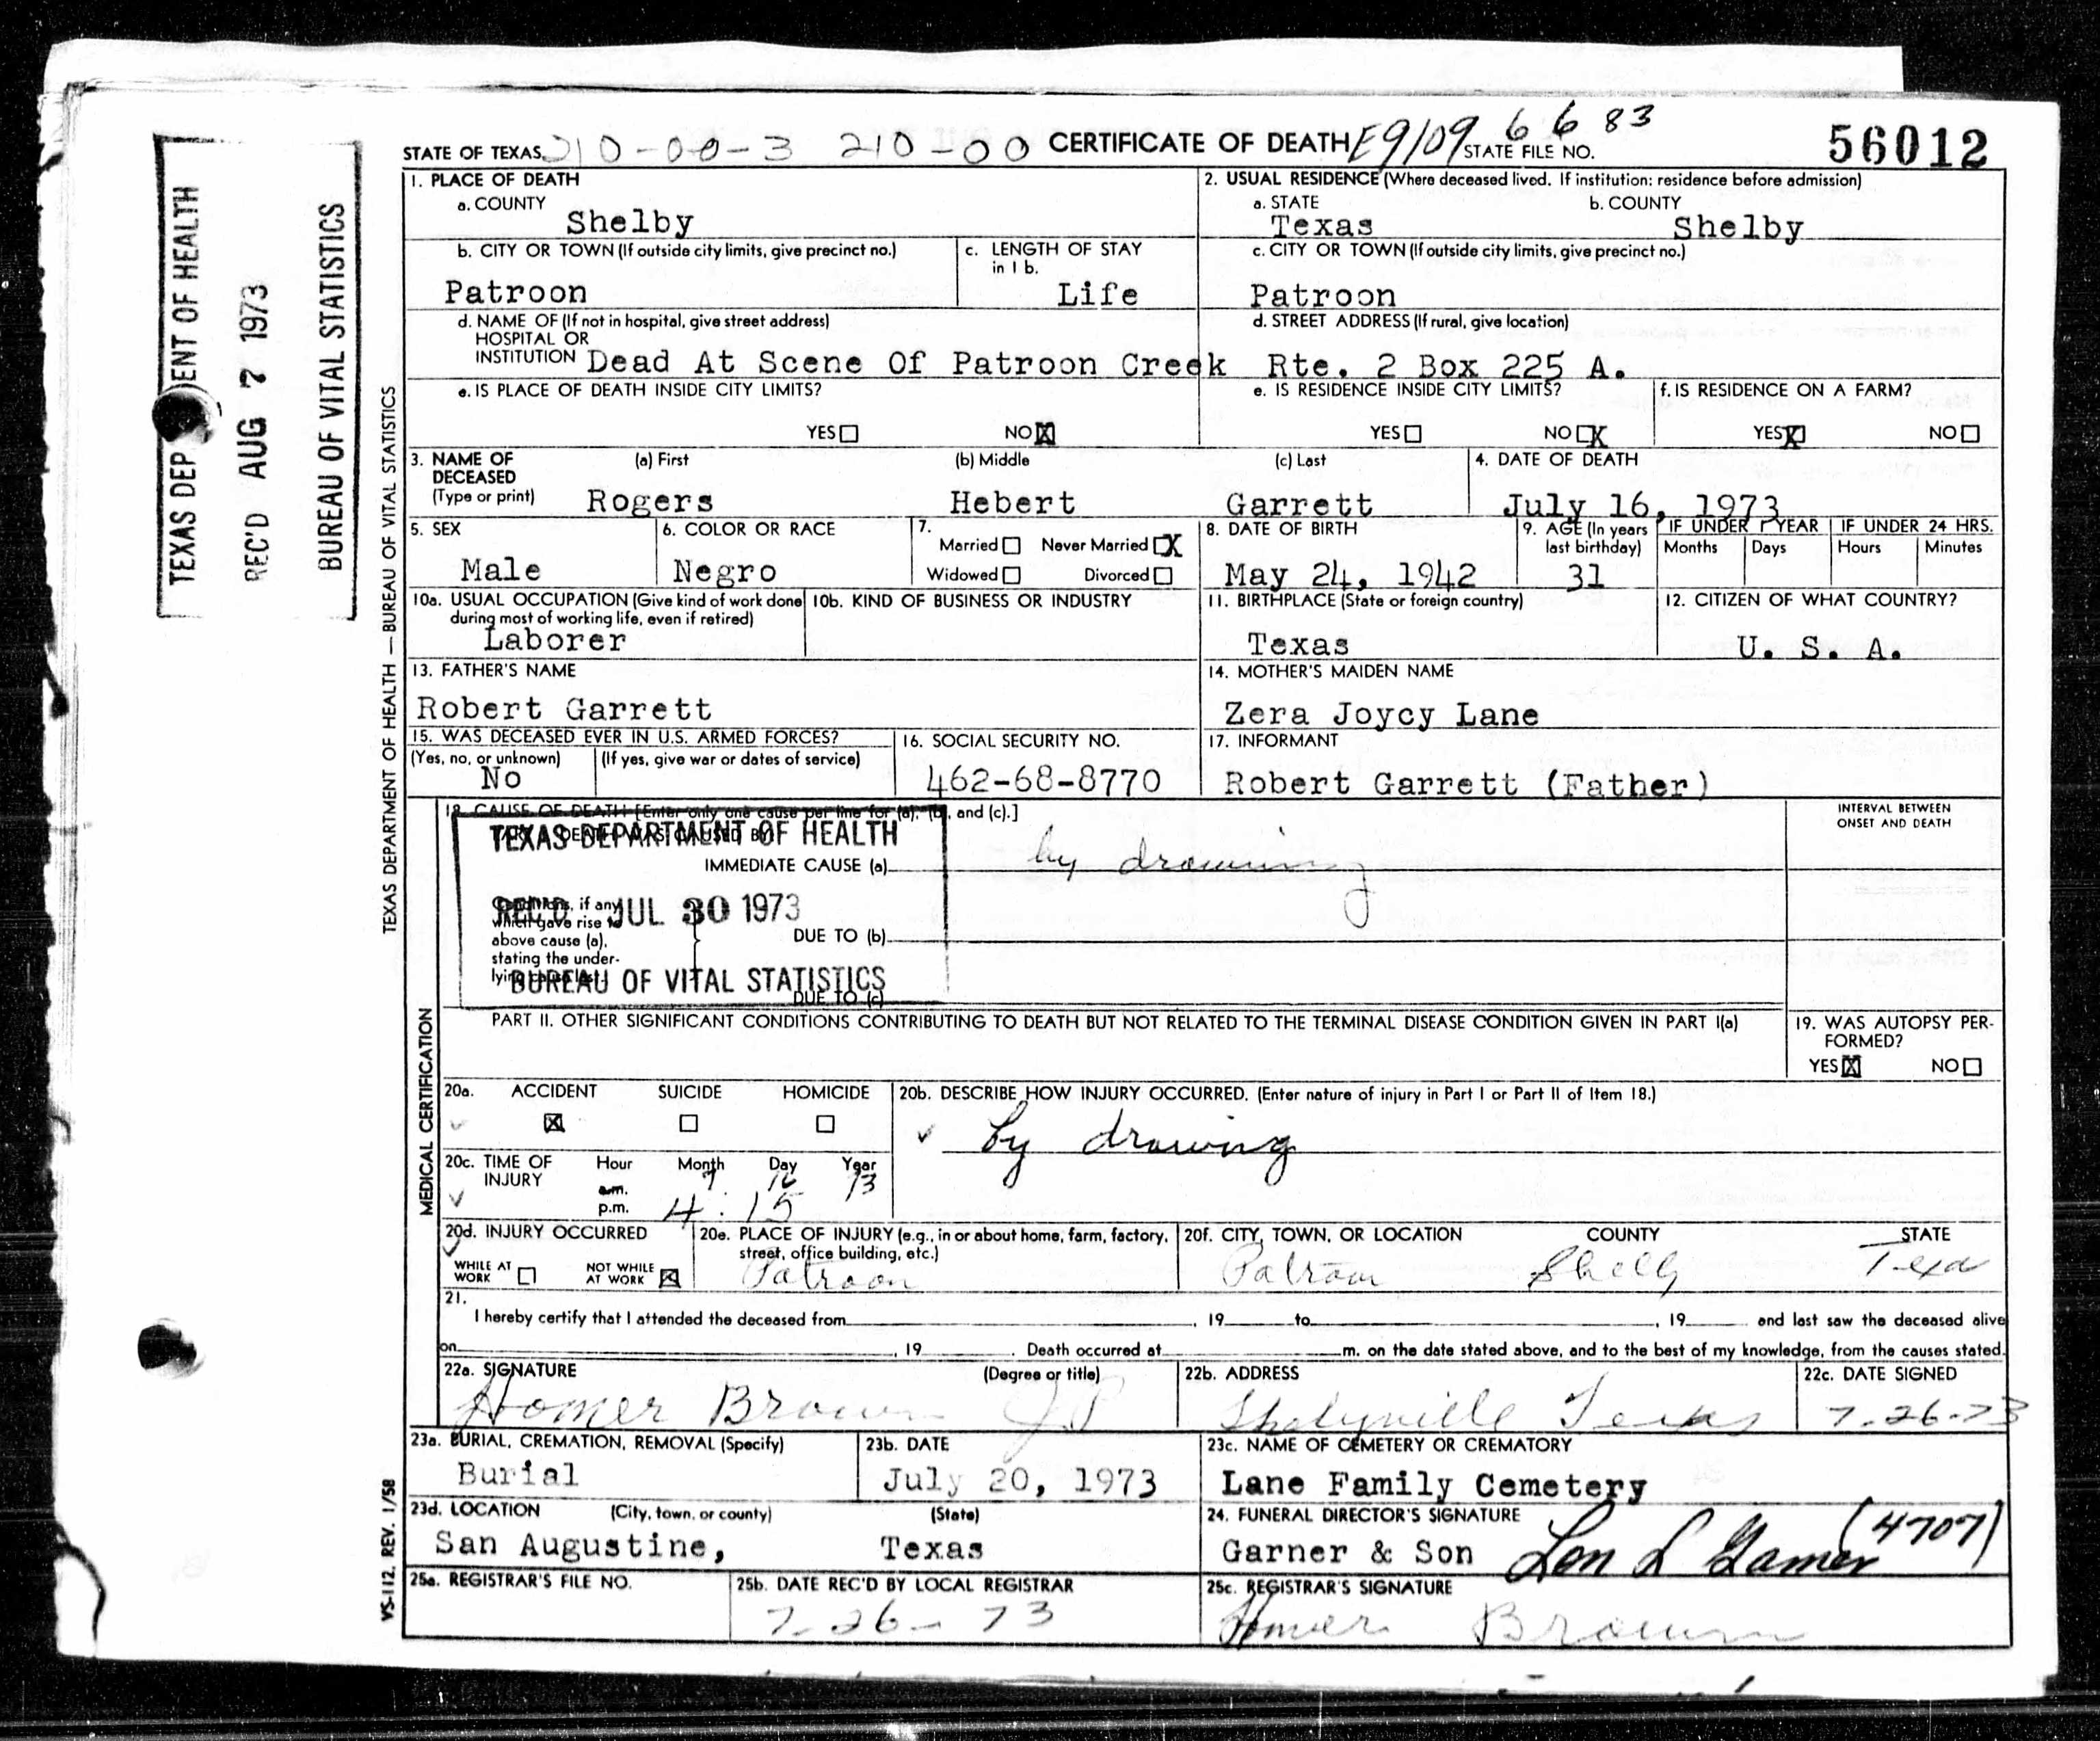 TEXAS DEP ENT OF HEALTH
REC'D AUG 7 1973
BUREAU OF VITAL STATISTICS
TEXAS DEPARTMENT OF HEALTH — BUREAU OF VITAL STATISTICS
VS-112, REV. 1/58
STATE OF TEXAS 210-00-3 210-00 CERTIFICATE OF DEATH E9109 6683 STATE FILE NO. 56012
1. PLACE OF DEATH
a. COUNTY
Shelby
2. USUAL RESIDENCE (Where deceased lived. If institution: residence before admission)
a. STATE b. COUNTY
Texas Shelby
b. CITY OR TOWN (If outside city limits, give precinct no.)
Patroon
c. LENGTH OF STAY in 1 b.
Life
c. CITY OR TOWN (If outside city limits, give precinct no.)
Patroon
d. NAME OF (If not in hospital, give street address)
HOSPITAL OR
INSTITUTION Dead At Scene Of Patroon Creek
d. STREET ADDRESS (If rural, give location)
Rte. 2 Box 225 A.
e. IS PLACE OF DEATH INSIDE CITY LIMITS?
YES NO X
e. IS RESIDENCE INSIDE CITY LIMITS?
YES NO X
f. IS RESIDENCE ON A FARM?
YES X NO
3. NAME OF DECEASED (Type or print)
(a) First (b) Middle (c) Last
Rogers Hebert Garrett
4. DATE OF DEATH
July 16, 1973
5. SEX
Male
6. COLOR OR RACE
Negro
7.
Married Never Married X
Widowed Divorced
8. DATE OF BIRTH
May 24, 1942
9. AGE (In years last birthday)
31
IF UNDER 1 YEAR IF UNDER 24 HRS.
Months Days Hours Minutes
10a. USUAL OCCUPATION (Give kind of work done
during most of working life, even if retired)
Laborer
10b. KIND OF BUSINESS OR INDUSTRY
11. BIRTHPLACE (State or foreign country)
Texas
12. CITIZEN OF WHAT COUNTRY?
U. S. A.
13. FATHER'S NAME
Robert Garrett
14. MOTHER'S MAIDEN NAME
Zera Joycy Lane
15. WAS DECEASED EVER IN U.S. ARMED FORCES?
(Yes, no, or unknown) (If yes, give war or dates of service)
No
16. SOCIAL SECURITY NO.
462-68-8770
17. INFORMANT
Robert Garrett (Father)
MEDICAL CERTIFICATION
18. CAUSE OF DEATH [Enter only one cause per line for (a), (b), and (c).]
TEXAS DEPARTMENT OF HEALTH
REC'D JUL 30 1973
BUREAU OF VITAL STATISTICS
INTERVAL BETWEEN
ONSET AND DEATH
IMMEDIATE CAUSE (a) by drowning
Conditions, if any
which gave rise to
above cause (a),
stating the under-
lying cause last.
DUE TO (b)
DUE TO (c)
PART II. OTHER SIGNIFICANT CONDITIONS CONTRIBUTING TO DEATH BUT NOT RELATED TO THE TERMINAL DISEASE CONDITION GIVEN IN PART I(a)
19. WAS AUTOPSY PER-
FORMED?
YES X NO
20a. ACCIDENT SUICIDE HOMICIDE
X
20b. DESCRIBE HOW INJURY OCCURRED. (Enter nature of injury in Part I or Part II of Item 18.)
by drawing
20c. TIME OF INJURY
Hour Month Day Year
a.m. 7 16 73
p.m. 4:15
20d. INJURY OCCURRED
WHILE AT WORK NOT WHILE AT WORK X
20e. PLACE OF INJURY (e.g., in or about home, farm, factory,
street, office building, etc.)
Patroon
20f. CITY, TOWN, OR LOCATION COUNTY STATE
Patroon Shelby Texa
21.
I hereby certify that I attended the deceased from , 19 to , 19 and last saw the deceased alive
on , 19 . Death occurred at m. on the date stated above, and to the best of my knowledge, from the causes stated.
22a. SIGNATURE (Degree or title)
Homer Brown JP
22b. ADDRESS
Shelbyville Texas
22c. DATE SIGNED
7-26-73
23a. BURIAL, CREMATION, REMOVAL (Specify)
Burial
23b. DATE
July 20, 1973
23c. NAME OF CEMETERY OR CREMATORY
Lane Family Cemetery
23d. LOCATION (City, town, or county) (State)
San Augustine, Texas
24. FUNERAL DIRECTOR'S SIGNATURE
Garner & Son Lon L Garner (4707)
25a. REGISTRAR'S FILE NO.
25b. DATE REC'D BY LOCAL REGISTRAR
7-26-73
25c. REGISTRAR'S SIGNATURE
Homer Brown